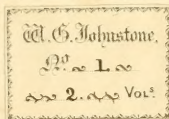 W. G. Johnstone.
No. 1.
2. Vols.